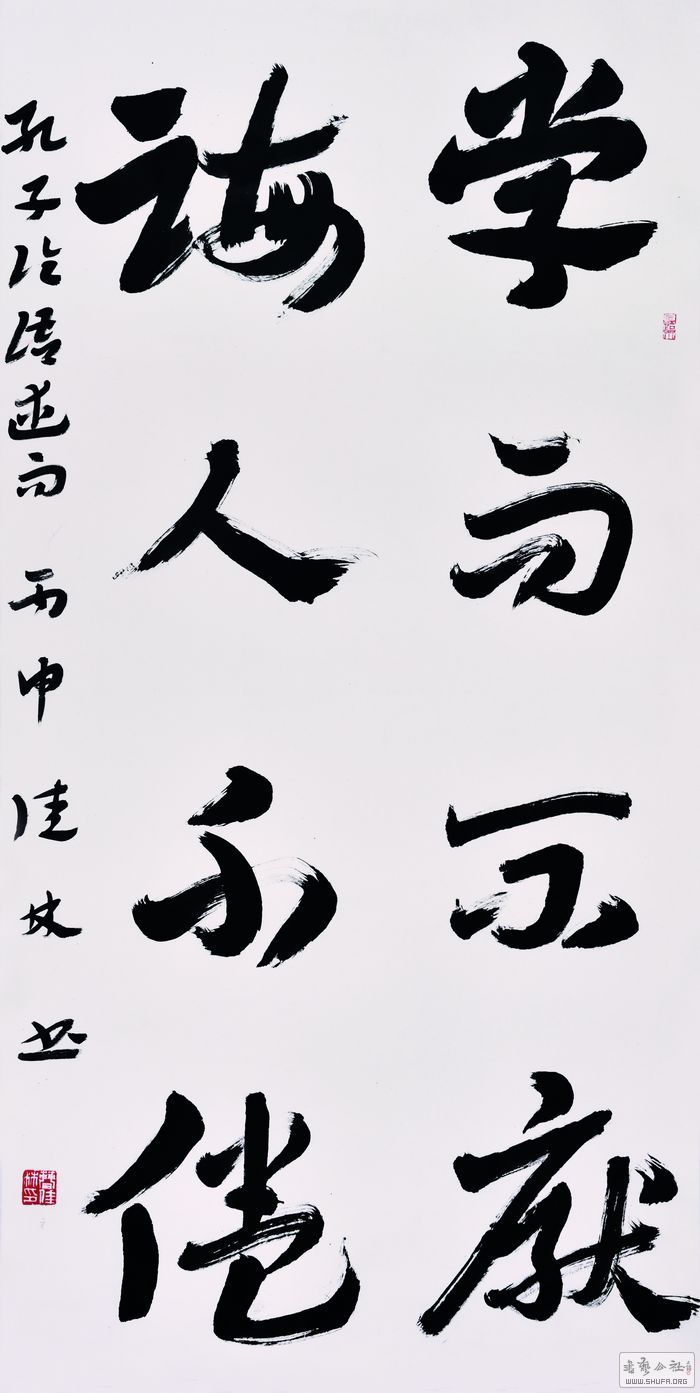 学而不厭
诲人不倦
孔子论语述而 丙申 佳林 书
WWW.SHUFA.ORG